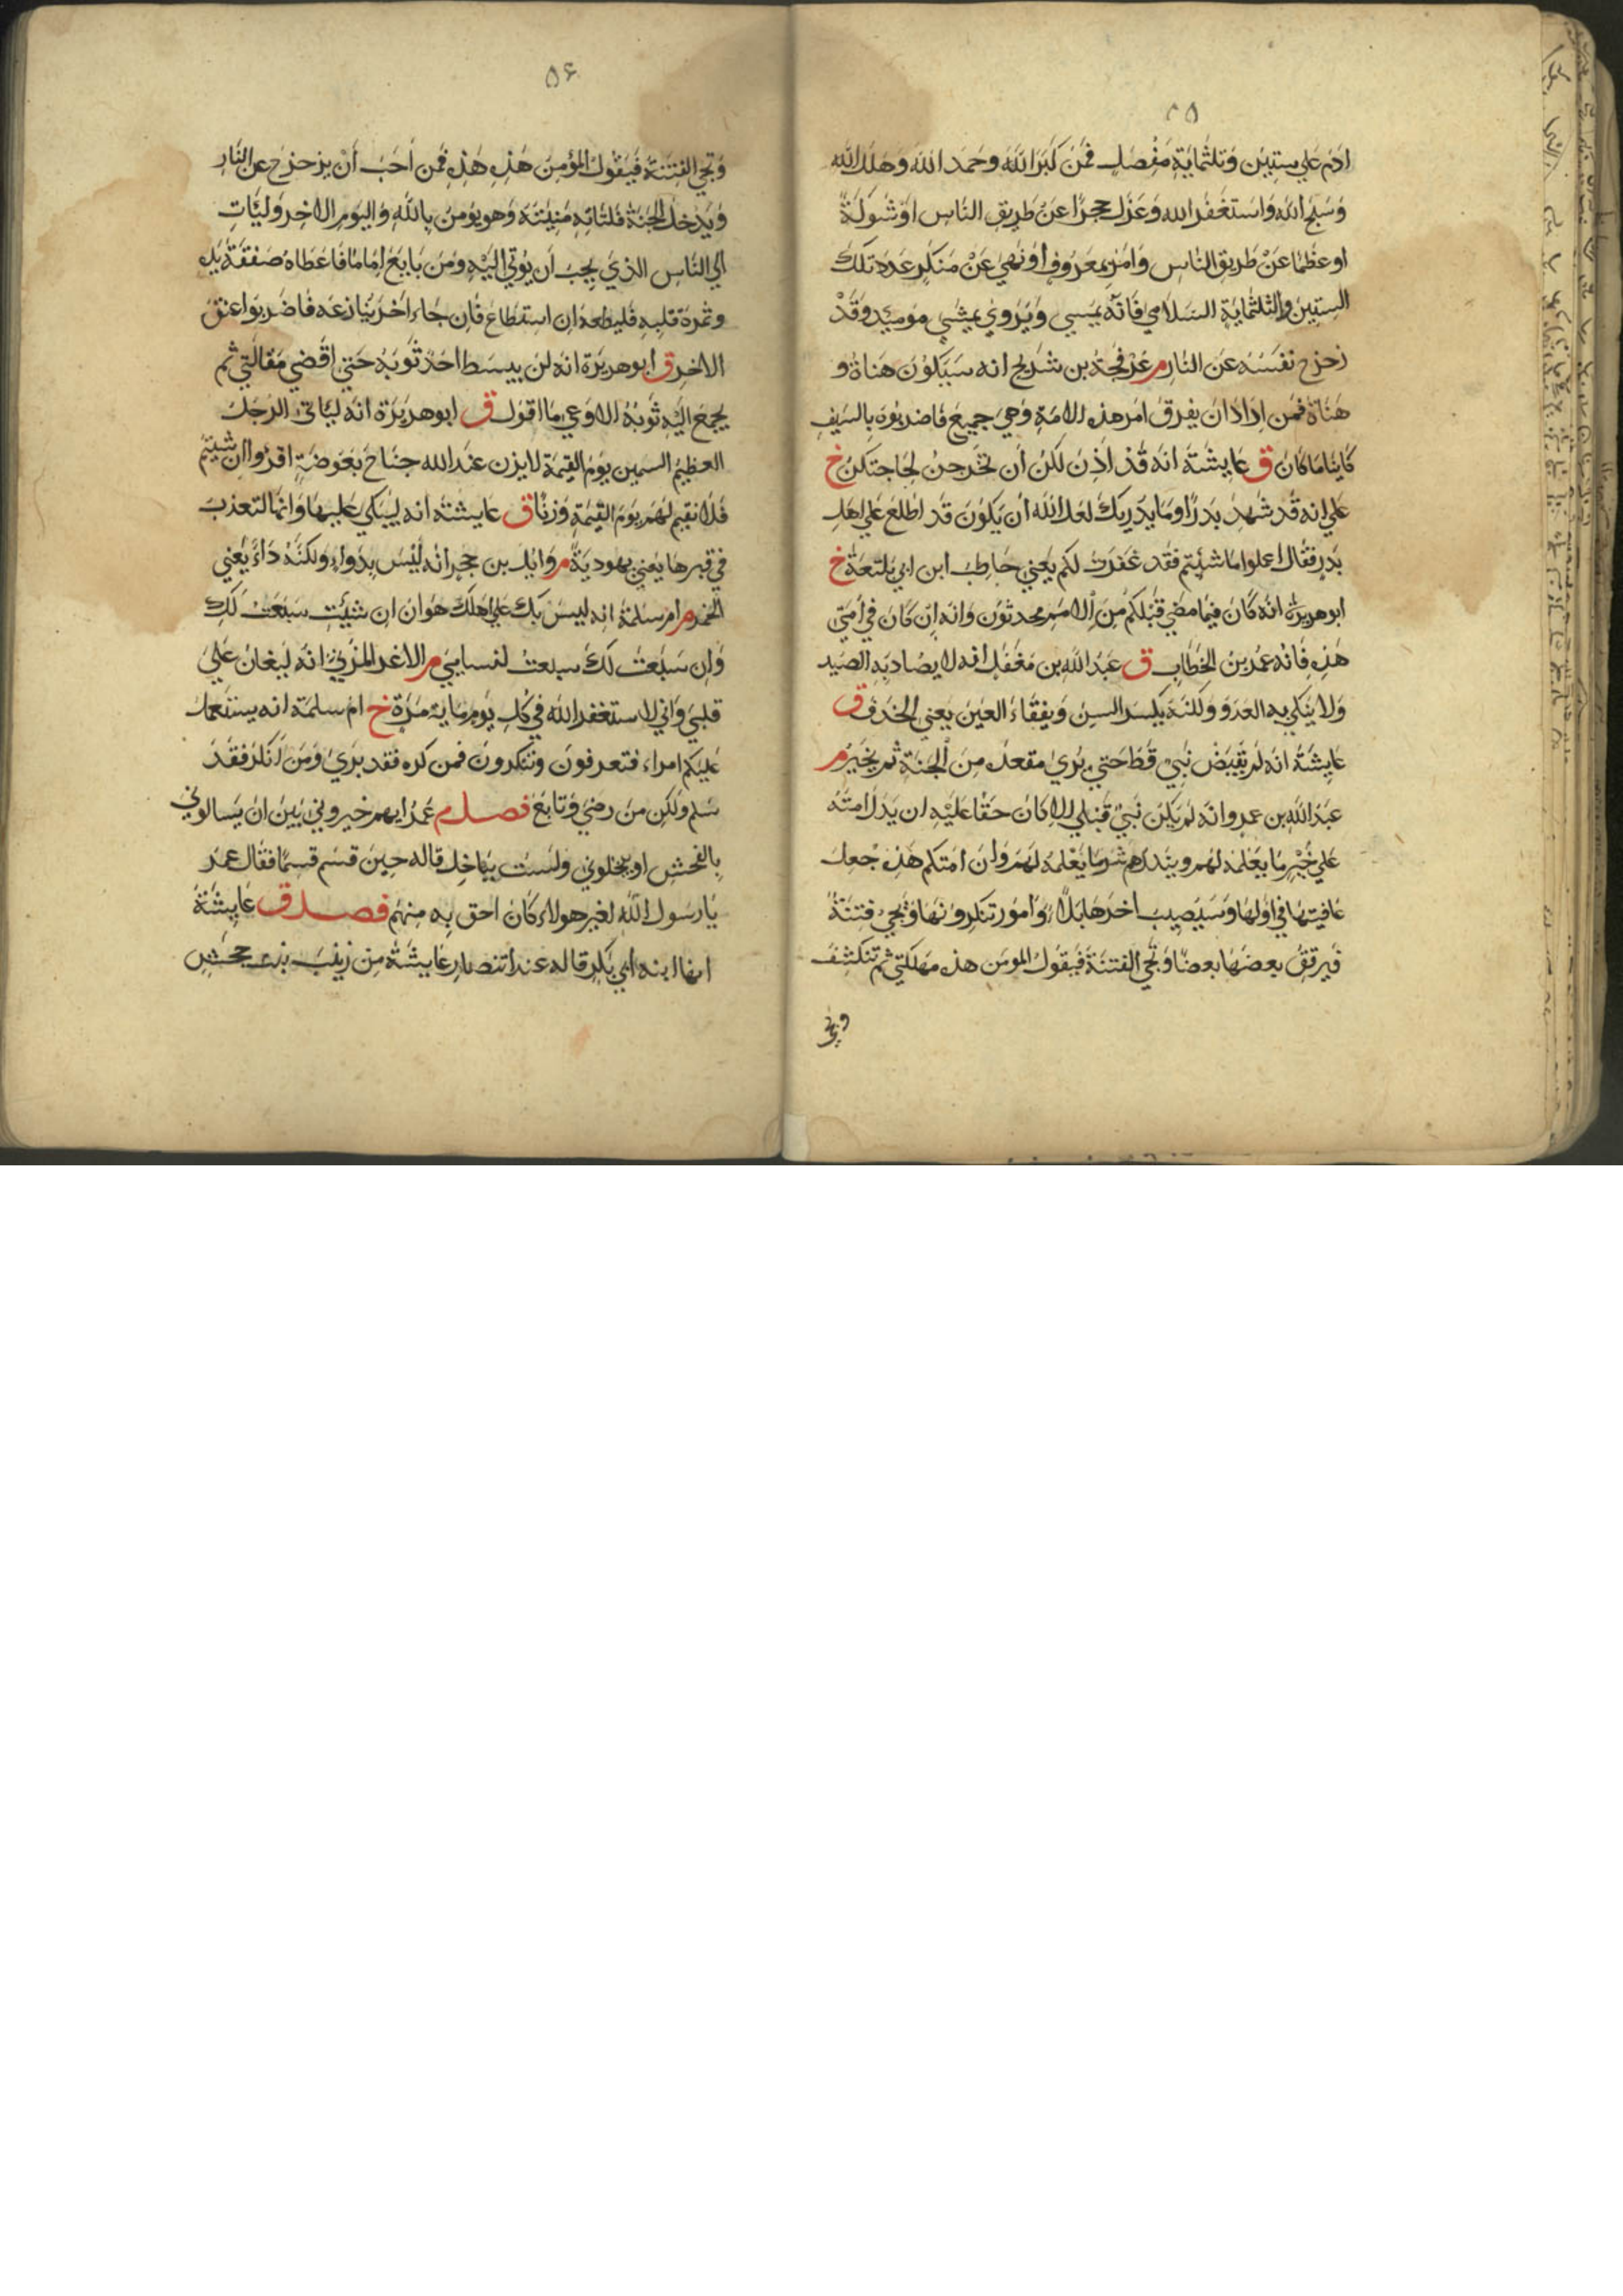 ٥٥
ادم علي ستين وثلثماية مفصل فمن كبر الله وحمد الله وهلل الله
وسبح الله واستغفر الله وعزل حجرا عن طريق الناس او شوكة
او عظما عن طريق الناس وامر بمعروف او نهي عن منكر عدد تلك
الستين والثلثماية السلامي فانه يمسي ويروي يمشي يوميد وقد
زحزح نفسه عن النار م عرفجة بن شريح انه سيكون هناة و
هناة فمن اراد ان يفرق امر هذه الامة وهي جميع فاضربوه بالسيف
كاينا ما كان ق عايشة انه قد اذن لكن ان تخرجن لحاجتكن خ
علي انه قد شهد بدرا وما يدريك لعل الله ان يكون قد اطلع علي اهل
بدر فقال اعملوا ما شئتم فقد غفرت لكم يعني حاطب ابن ابي بلتعة خ
ابو هريرة انه كان فيما مضي قبلكم من الامم محدثون وانه ان كان في امتي
هذه فانه عمر بن الخطاب ق عبد الله بن مغفل انه لا يصاد به الصيد
ولا ينكي به العدو ولكنه يكسر السن ويفقاء العين يعني الخذف ق
عايشة انه لم يقبض نبي قط حتي يري مقعده من الجنة ثم يخير م
عبد الله بن عمرو انه لم يكن نبي قبلي الا كان حقا عليه ان يدل امته
علي خير ما يعلمه لهم وينذرهم شر ما يعلمه لهم وان امتكم هذه جعل
عافيتها في اولها وسيصيب اخرها بلاء وامور تنكرونها وتجي فتنة
فيرقق بعضها بعضا وتجي الفتنة فيقول المومن هذه مهلكتي ثم تنكشف
وتجي
٥۶
وتجي الفتنة فيقول المؤمن هذه هذه فمن احب ان يزحزح عن النار
ويدخل الجنة فلتاته منيته وهو يومن بالله واليوم الاخر وليات
الي الناس الذي يحب ان يوتي اليه ومن بايع اماما فاعطاه صفقة يده
وثمرة قلبه فليطعه ان استطاع فان جاء اخر ينازعه فاضربوا عنق
الاخر ق ابو هريرة انه لن يبسط احد ثوبه حتي اقضي مقالتي ثم
يجمع اليه ثوبه الا وعي ما اقول ق ابو هريرة انه لياتي الرجل
العظيم السمين يوم القيمة لا يزن عند الله جناح بعوضة اقرؤا ان شيتم
فلا نقيم لهم يوم القيمة وزنا ق عايشة انه ليبكي عليها وانها لتعذب
في قبرها يعني يهودية م وايل بن حجر انه ليس بدواء ولكنه داء يعني
الخمر م ام سلمة انه ليس بك علي اهلك هوان ان شئت سبعت لك
وان سبعت لك سبعت لنسايي م الاغر المزني انه ليغان علي
قلبي واني لاستغفر الله في كل يوم ماية مرة خ ام سلمة انه يستعمل
عليكم امراء فتعرفون وتنكرون فمن كره فقد بري ومن انكر فقد
سلم ولكن من رضي وتابع فصل م عمر انهم خيروني بين ان يسالوني
بالفحش او يبخلوني ولست بباخل قاله حين قسم قسما فقال عمر
يا رسول الله لغير هولاء كان احق به منهم فصل ق عايشة
انها ابنه ابي بكر قاله عند انتصار عايشة من زينب بنت جحش